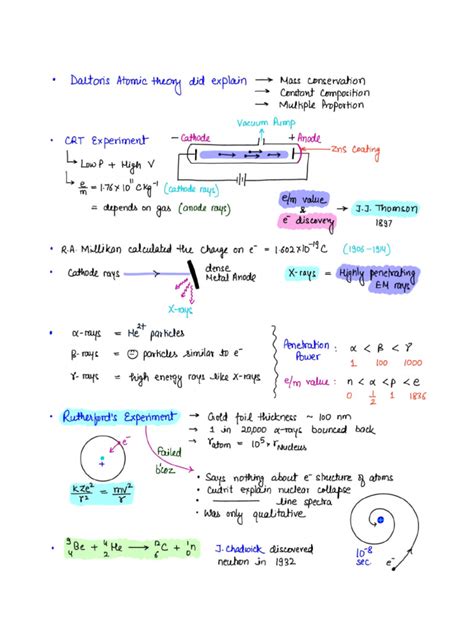 • Daltons Atomic theory did explain → Mass Conservation
→ Constant Composition
→ Multiple Proportion
Vacuum Pump
• CRT Experiment
- Cathode
+ Anode
ZnS Coating
↳ Low P + High V
↳ e/m = 1.76 x 10¹¹ C kg⁻¹ (cathode rays)
= depends on gas (anode rays)
e/m value
&
e⁻ discovery
→ J.J. Thomson
1897
• R.A. Millikan calculated the charge on e⁻ = 1.602x10⁻¹⁹C (1906-1914)
• Cathode rays
dense
Metal Anode
X-rays
X-rays = Highly penetrating
EM rays
• α-rays = He²⁺ particles
β-rays = ☺ particles similar to e⁻
γ-rays = high energy rays like X-rays
Penetration
Power : α < β < γ
1 100 1000
e/m value : n < α < p < e
0 1/2 1 1836
• Rutherford's Experiment → Gold foil thickness ~ 100 nm
→ 1 in 20,000 α-rays bounced back
→ r atom = 10⁵ x r Nucleus
e⁻
+
Failed
b'coz
KZe²/r² = mv²/r
• Says nothing about e⁻ structure of atoms
explain nuclear collapse
line spectra
• Was only qualitative
10⁻⁸
sec.
e⁻
• ⁹₄Be + ⁴₂He → ¹²₆C + ¹₀n
J. Chadwick discovered
neutron in 1932